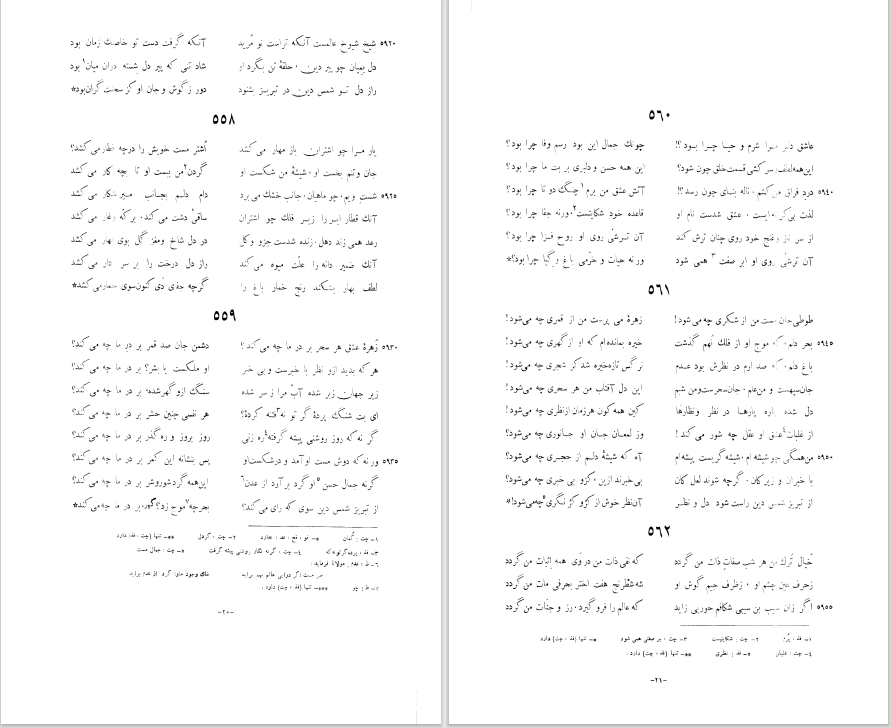 ۵۹۲۰ شیخ شیوخ عالمست آنکه تراست نو مرید آنکه گرفت دست تو خاصک زمان بود
دل بمیان چو پیر دین، حلقهٔ تن بگرد او شاد تنی که پیر دل شسته در آن میان۱ بود
راز دل تو شمس دین در تبریز بشنود دور ز گوش و جان او کز سخنت گران بود*
۵۵۸
یار مرا چو اشتران باز مهار می‌کشد اشتر مست خویش را در چه قطار می‌کشد؟
جان و تنم بخست او، شیشهٔ من شکست او گردن۲ من ببست او تا بچه کار می‌کشد
۵۹۲۵ شست ویم، چو ماهیان، جانب خشک می‌برد دام دلم بجانب میر شکار می‌کشد
آنک قطار ابر را زیر فلک چو اشتران ساقی دشت می‌کند، بر که و غار می‌کشد
رعد همی زند دهل، زنده شدست جزو و کل در دل شاخ و مغز گل بوی بهار می‌کشد
آنک ضمیر دانه را علت میوه می‌کند راز دل درخت را بر سر دار می‌کشد
لطف بهار بشکند رنج خمار باغ را گرچه جفای دی کنون سوی خمار می‌کشد*
۵۵۹
۵۹۳۰ زهرهٔ عشق هر سحر بر در ما چه می‌کند؟ دشمن جان صد قمر بر در ما چه می‌کند؟
هر که بدید ازو نظر با خبرست و بی خبر او ملکست یا بشر؟ بر در ما چه می‌کند؟
زیر جهان زبر شده آب مرا ز سر شده سنگ ازو گهر شده، بر در ما چه می‌کند؟
ای بت شنگ پردهٔ گر تو نه فتنه کردهٔ؟ هر نفسی چنین حشر بر در ما چه می‌کند؟
گر نه که روز روشنی پیشه گرفته ره زنی روز بروز و ره گذر بر در ما چه می‌کند؟
۵۹۳۵ ور نه که دوش مست او آمد و درشکست او پس بنشانه این کمر بر در ما چه می‌کند؟
گرنه جمال حسن او گرد بر آرد از عدن این همه گرد شور و شر بر در ما چه می‌کند؟
از تبریز شمس دین سوی که رای می‌کند؟ بحر چه موج زد؟ گهر بر در ما چه می‌کند؟*
۱- چت : گمان ۲- چت : گردل ** تنها (چت ، فذ) دارد
۴- چت : گرنه نگار روشنی پیشه گرفت ۵- چت : جمال مست
۶- فذ : عدم ، مولانا فرماید :
خاک وجود مارا گرد از عدم برآید
۷- فذ : چو *** تنها (فذ ، چت) دارد .
-۲۰-
۵۶۰
عاشق دلبر مرا شرم و حیا چرا بود؟! چونک جمال این بود رسم وفا چرا بود؟
این همه لطف و سرکشی قسمت خلق چون شود؟ این همه حسن و دلبری بر بت ما چرا بود؟
۵۹۴۰ درد فراق من کشم، ناله بنای چون رسد؟! آتش عشق من برم۱ چنگ دو تا چرا بود؟
لذت بی‌کرانه‌ایست، عشق شدست نام او قاعده خود شکایتست۲، ورنه جفا چرا بود؟
از سر ناز و غنج خود روی چنان ترش کند آن ترشی روی او روح فزا چرا بود؟
آن ترشی روی او ابر صفت۳ همی شود ورنه حیات و خرمی باغ و گیا چرا بود؟*
۵۶۱
طوطی جان مست من از شکری چه می‌شود! زهرهٔ می پرست من از قمری چه می‌شود!
۵۹۴۵ بحر دلم، که موج او از فلک نهم گذشت خیره بمانده‌ام که او از گهری چه می‌شود!
باغ دلم، که صد ارم در نظرش بود عدم نرگس تازه خیره شد کز شجری چه می‌شود!
جان سپهست و من علم، جان سحرست و من شبم این دل آفتاب من هر سحری چه می‌شود!
دل شده پاره پارها در نظر و نظارها کین همه کون هر زمان از نظری چه می‌شود!
از غلبات۴ عشق او عقل چه شور می‌کند! وز لمعان جان او جانوری چه می‌شود!
۵۹۵۰ من همگی چو شیشه‌ام، شیشه‌گریست پیشه‌ام آه که شیشهٔ دلم از حجری چه می‌شود!
با خبران و زیرکان، گرچه شوند لعل کان بی‌خبرند ازین، کزو بی خبری چه می‌شود!
از تبریز شمس دین راست شود دل و نظر آن نظر خوش از کژو کژ نگری۵ چه می‌شود!*
۵۶۲
خیال ترک من هر شب صفات ذات من گردد که نفی ذات من در وی همه اثبات من گردد
ز حرف عین چشم او، ز ظرف جیم گوش او شه شطرنج هفت اختر بحرفی مات من گردد
۵۹۵۵ اگر زان سیب بن سیبی شکافم حوریی زاید که عالم را فرو گیرد، رز و جنات من گردد
۱- فذ ، برم ۲- چت : شکایتیست ۳- چت ، بر صفتی همی شود * تنها (فذ ، چت) دارد
۴- چت : غلبان ۵- فذ : نظری ** تنها (فذ ، چت) دارد .
-۲۱-